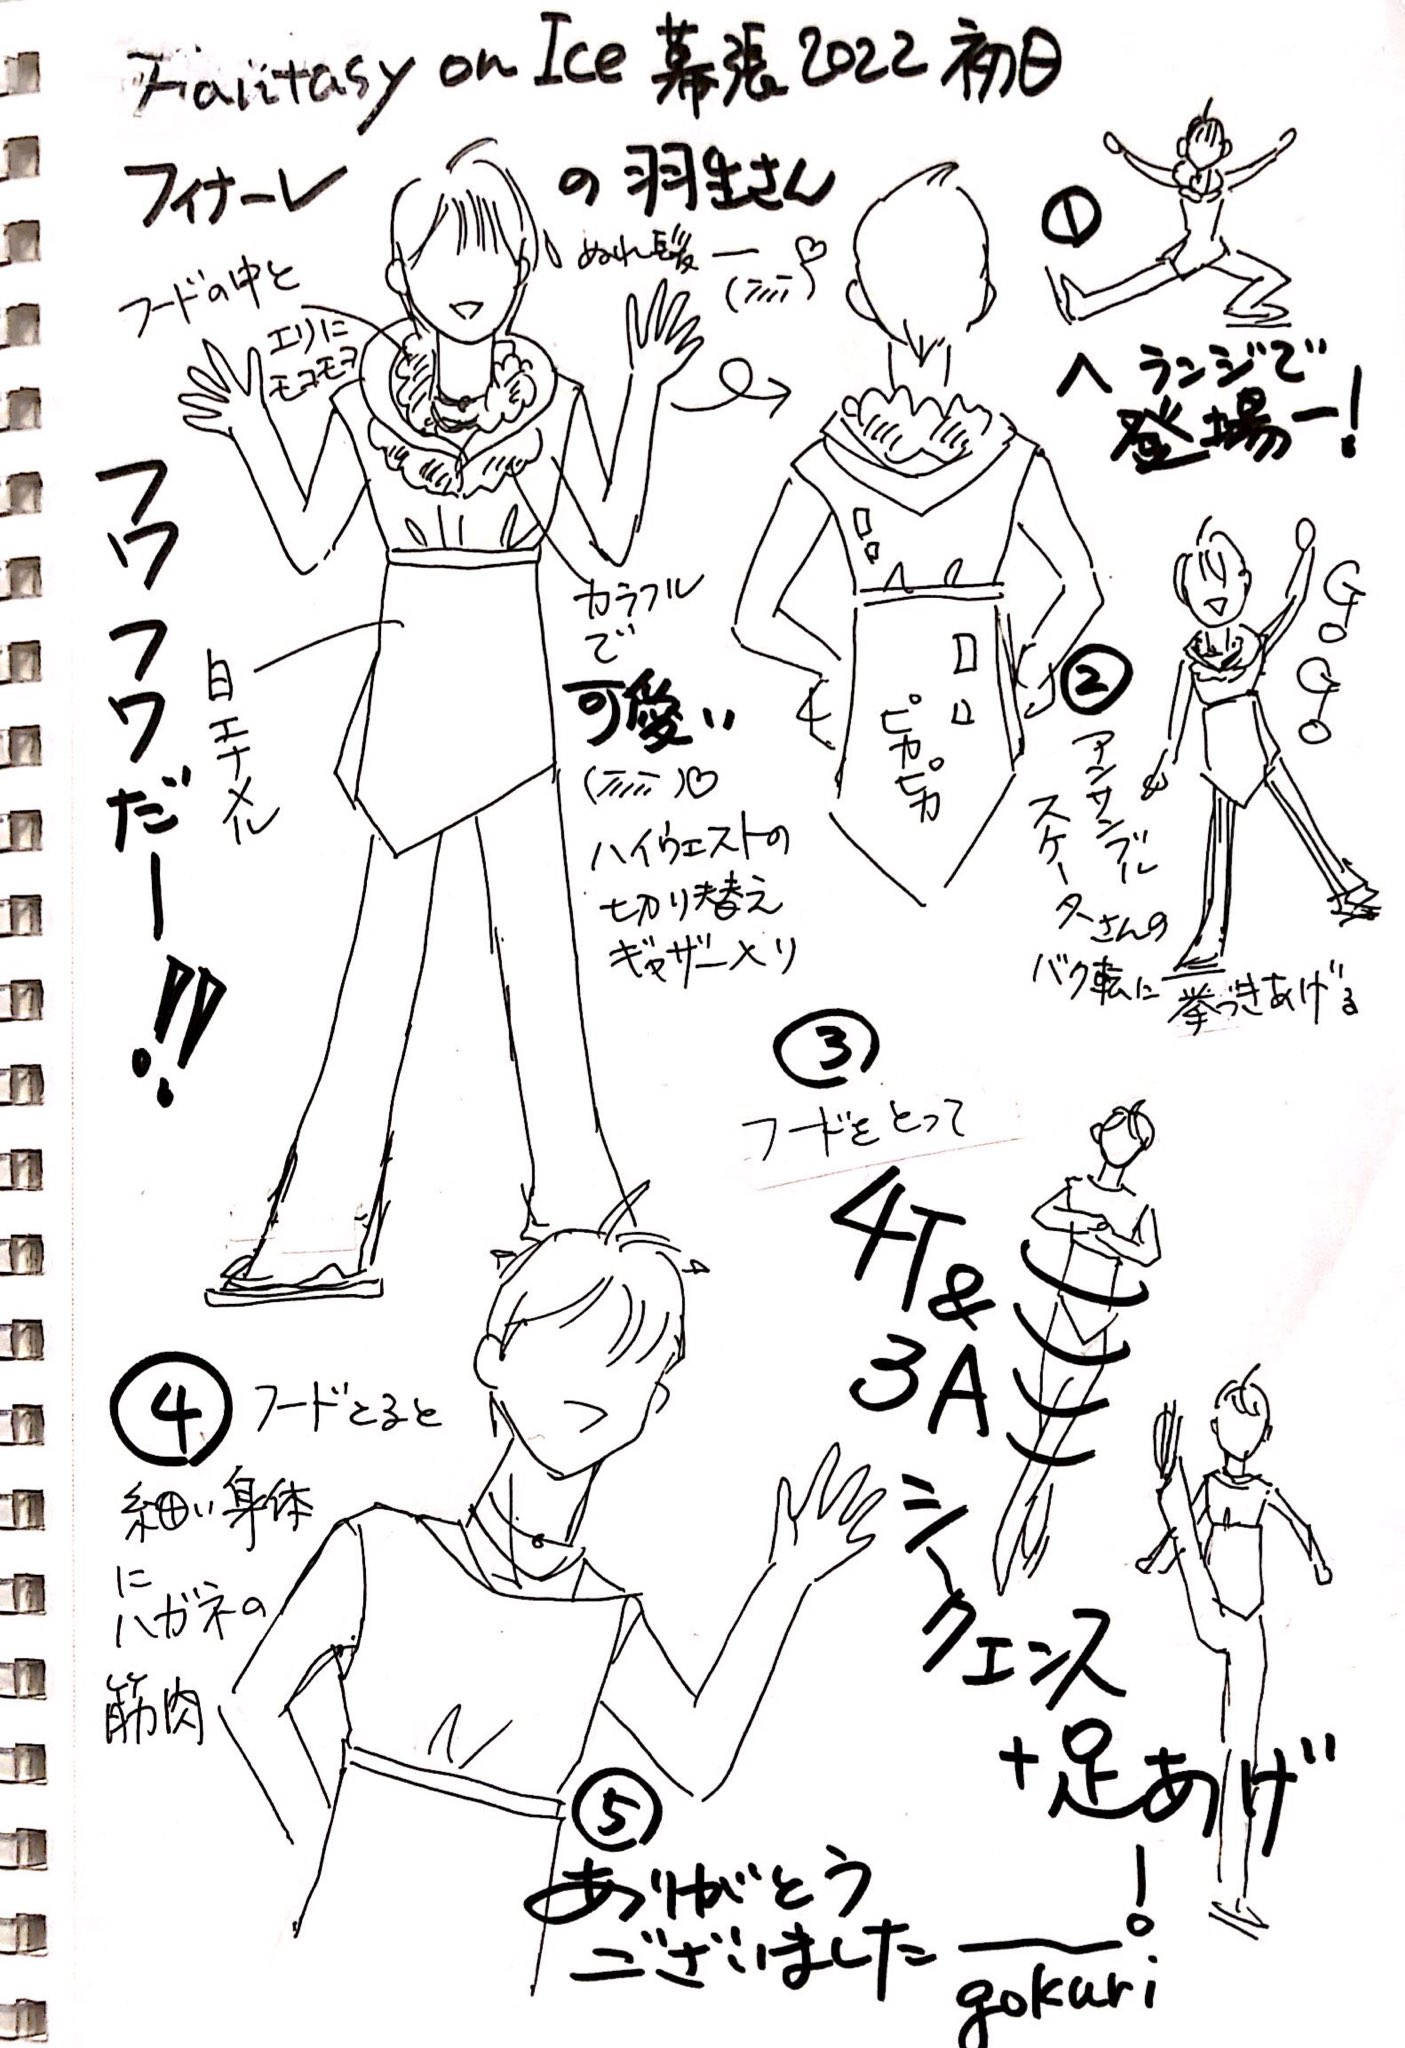 Faiitasy on Ice 幕張2022 初日
フィナーレ の 羽生さん
ぬれ髪ー
フードの中と
エリに
モコモコ
フワフワだー!!
白エナメル
カラフル
で
可愛い
ハイウェストの
切り替え
ギャザー入り
ピカピカ
①
ヘランジで
登場ー!
GoGo
②
アンサンブル
スケーターさんの
バク転に
拳つきあげる
③
フードをとって
4T&
3A
シークエンス
+足あげ!
④
フードとると
細い身体
に
ハガネの
筋肉
⑤
ありがとう
ございましたー!
gokuri